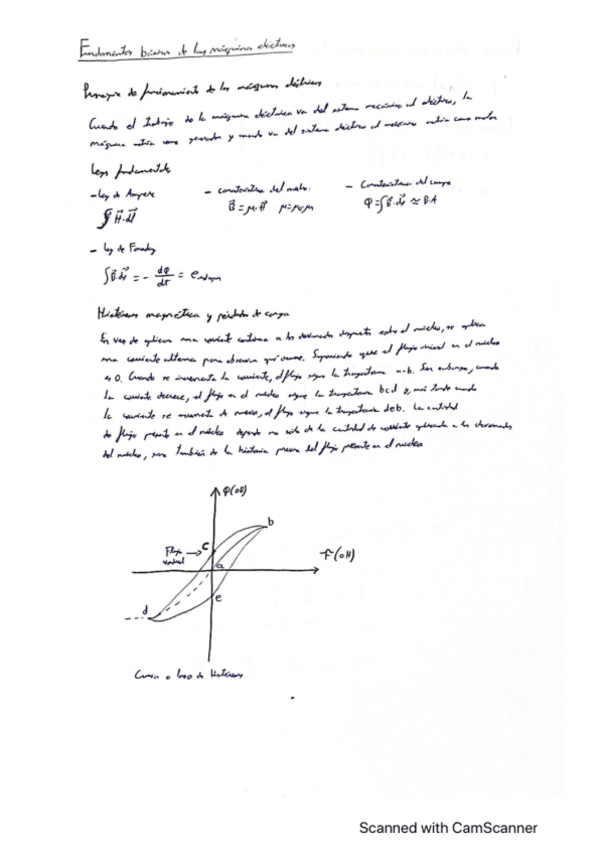 Fundamentos básicos de las máquinas eléctricas
Principio de funcionamiento de las máquinas eléctricas
Cuando el trabajo de la máquina eléctrica va del sistema mecánico al eléctrico, la
máquina actúa como generador y cuando va del sistema eléctrico al mecánico actúa como motor
Leyes fundamentales
- Ley de Ampere - Característica del medio: - Característica del campo
∮H·dl B=μ·H μ=μ₀μ Φ=∫B·ds ≃ B·A
- Ley de Faraday
∫E·dl = - dφ/dt = e
Histéresis magnética y pérdidas de carga
En vez de aplicar una corriente continua a los devanados dispuesto sobre el núcleo, se aplica
una corriente alterna para observar qué ocurre. Suponiendo que el flujo inicial en el núcleo
es 0. Cuando se incrementa la corriente, el flujo sigue la trayectoria a-b. Sin embargo, cuando
la corriente decrece, el flujo en el núcleo sigue la trayectoria bcd y, más tarde cuando
la corriente se aumenta de nuevo, el flujo sigue la trayectoria deb. La cantidad
de flujo presente en el núcleo depende no solo de la cantidad de corriente aplicada a los devanados
del núcleo, sino también de la historia previa del flujo presente en el núcleo
φ(oB)
b
Flujo residual → c
F(oH)
a
e
d
Curva o lazo de Histéresis
Scanned with CamScanner